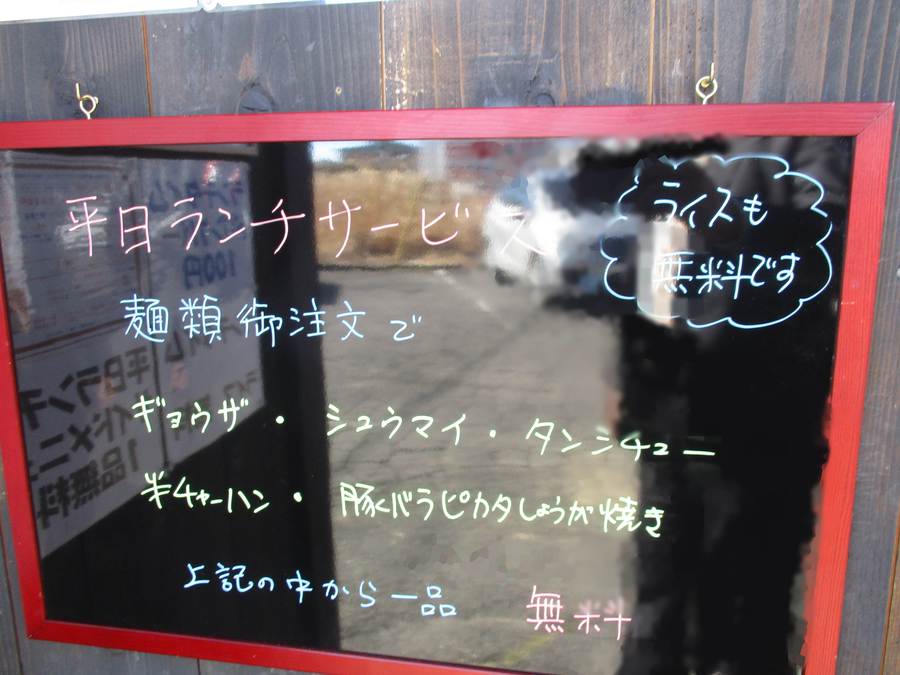 平日ランチサービス
ライスも
無料です
麺類御注文で
ギョウザ・シュウマイ・タンシチュー
半チャーハン・豚バラピカタしょうが焼き
上記の中から一品 無料
100円
平日ラン
イドメニ
1品無料